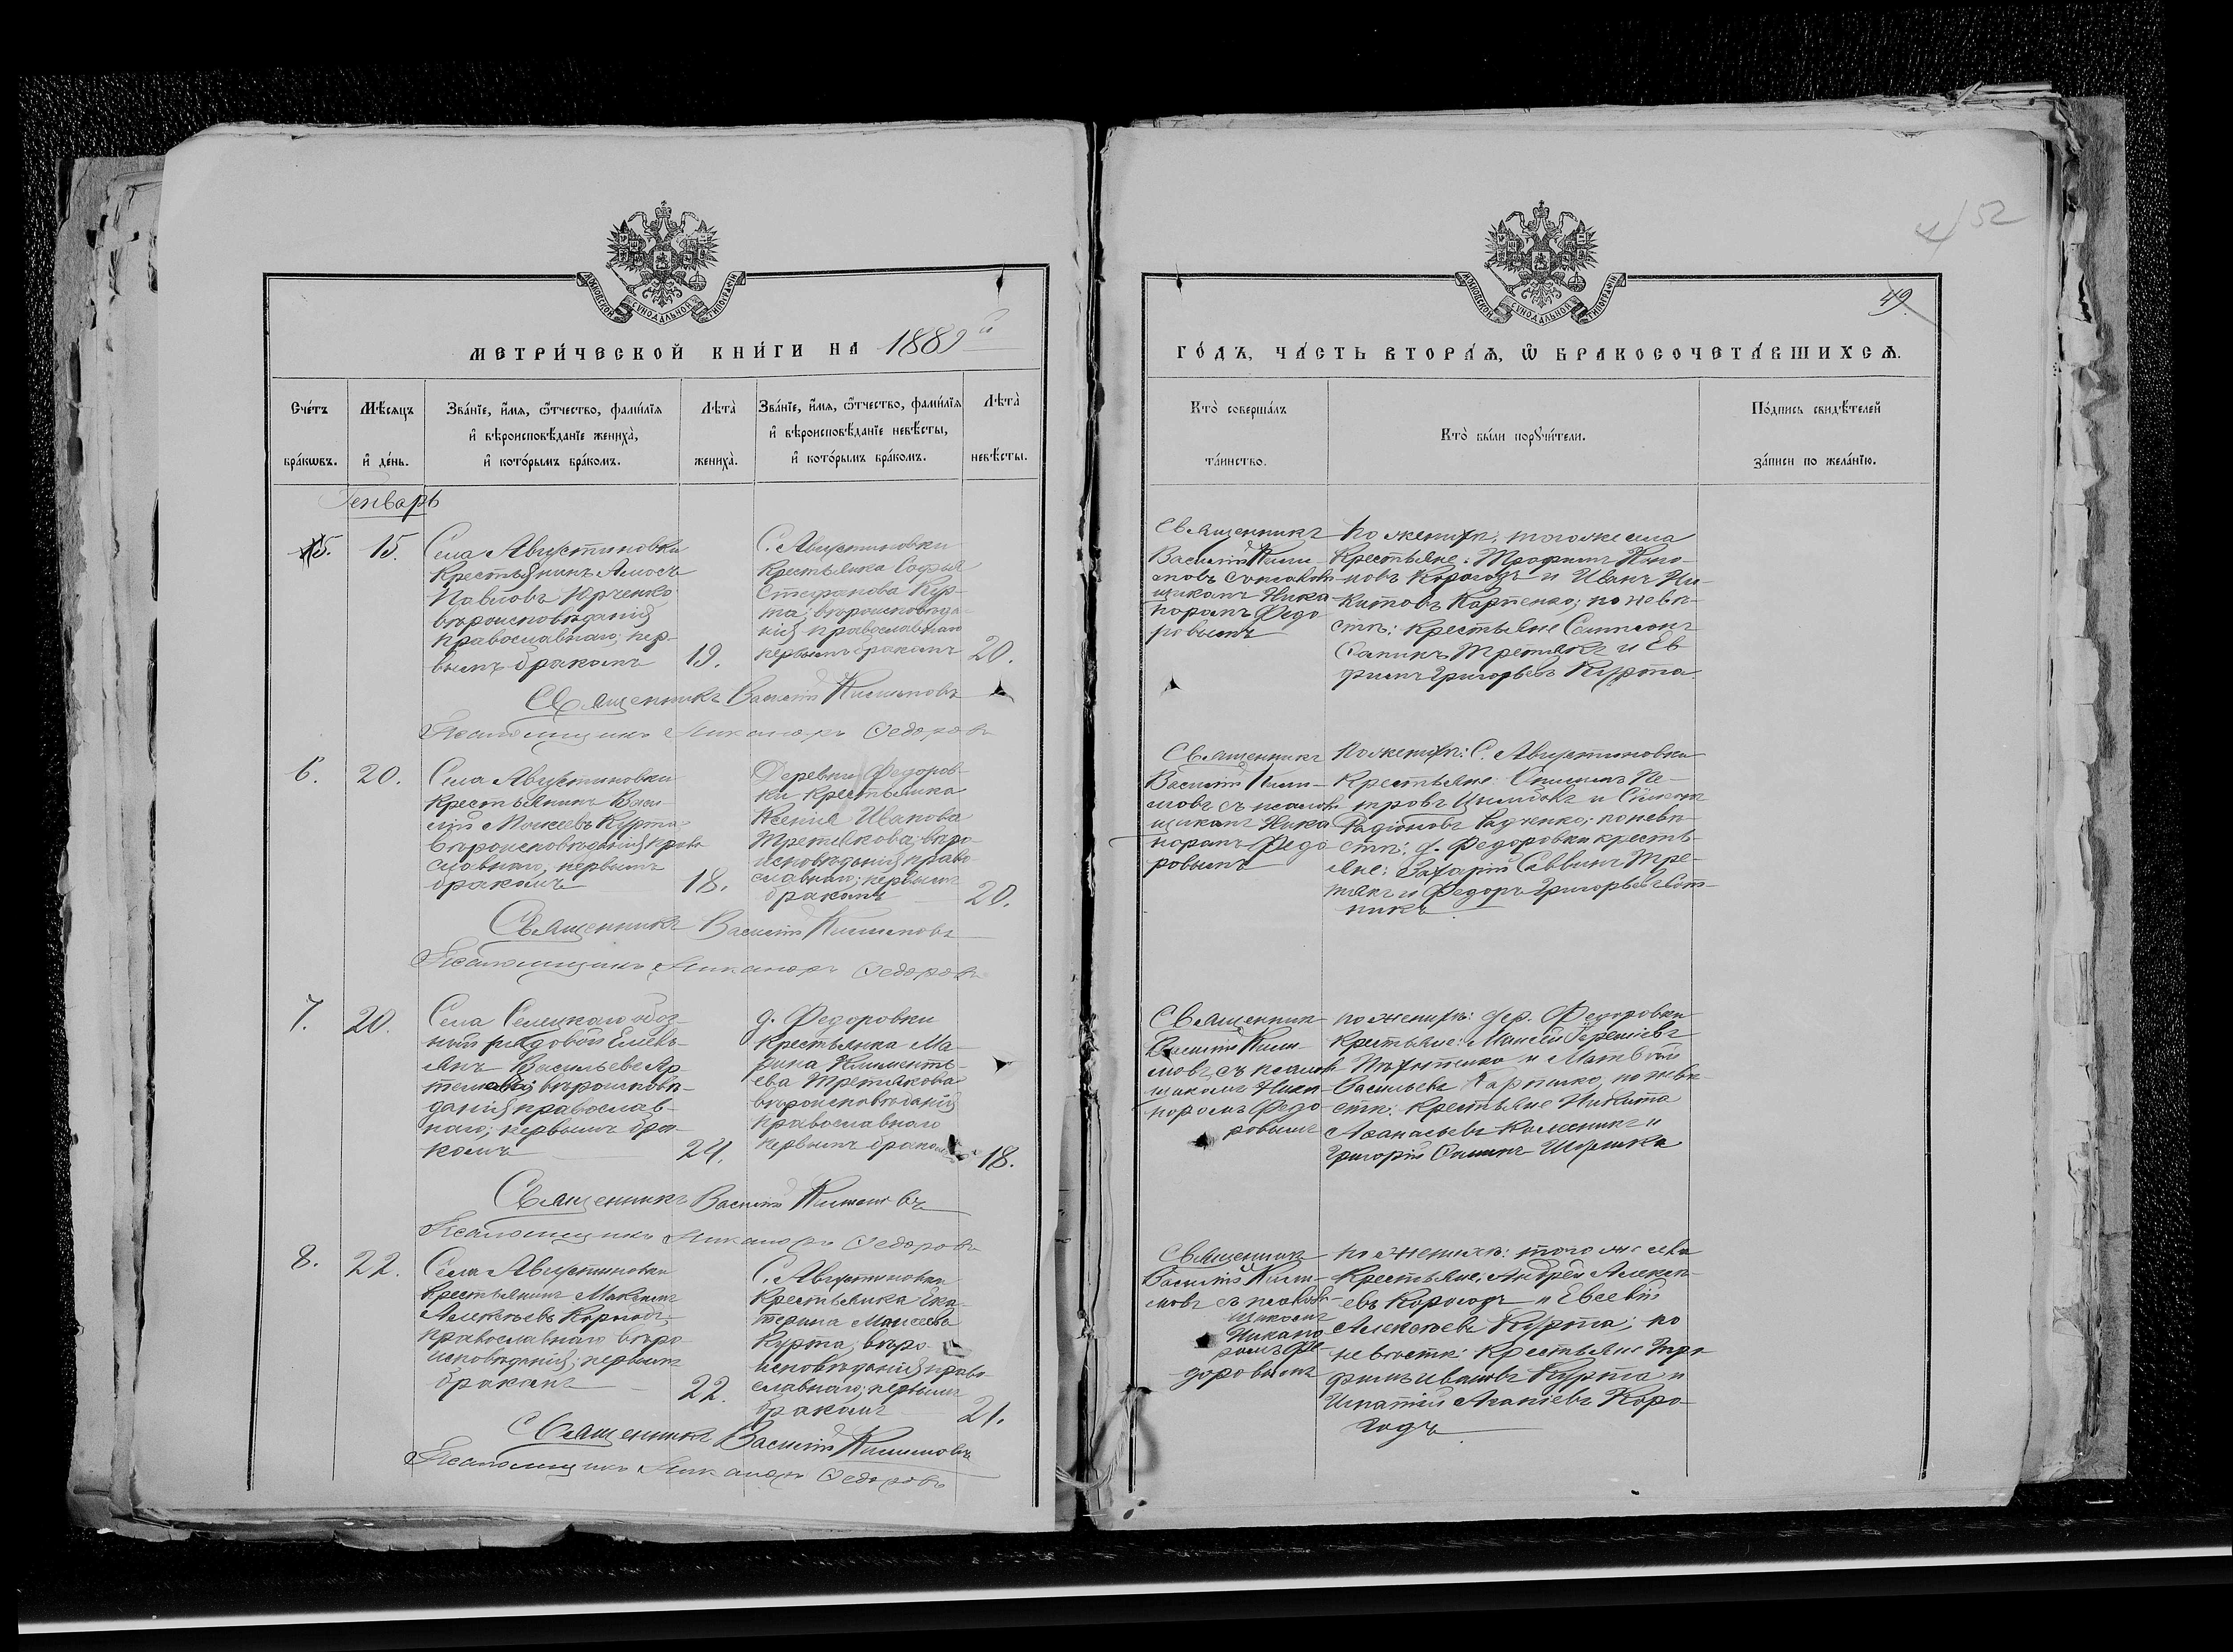 МОСКОВСКОЙ СѴНОДАЛЬНОЙ ТИПОГРАФІИ
МЕТРИ́ЧЕСКОЙ КНИ́ГИ НА 1889й
Сче́тъ бра́кѡвъ.
Мѣ́сяцъ и҆ де́нь.
Зва́нїе, и҆́мя, ѻ҆́тчество, фами́лїя
и҆ вѣроисповѣ́данїе жениха̀,
и҆ кото́рымъ бра́комъ.
Лѣта̀ жениха̀.
Зва́нїе, и҆́мя, ѻ҆́тчество, фами́лїя
и҆ вѣроисповѣ́данїе невѣ́сты,
и҆ кото́рымъ бра́комъ.
Лѣта̀ невѣ́сты.
Генварь
5.
15.
Села Августиновки
крестьянинъ Амосъ
Павловъ Юрченко
вѣроисповѣданія
православнаго; пер-
вымъ бракомъ
19.
С. Августиновки
крестьянка Софья
Стефанова Кур-
та; вѣроисповѣда-
нія православнаго
первымъ бракомъ
20.
Священникъ Василій
Псаломщикъ Никаноръ Ѳедоровъ
6.
20.
Села Августиновки
крестьянинъ Васи-
лій Моисеевъ Курта
вѣроисповѣданія право
славнаго; первымъ
бракомъ
18.
Деревни Федоров-
ки крестьянка
Ксенія Иванова
Третякова; вѣро-
исповѣданія право-
славнаго; первымъ
бракомъ
20.
Священникъ Василій
Псаломщикъ Никаноръ Ѳедоровъ
7.
20.
Села
рядовой Емель-
янъ Васильевъ Ар-
вѣроисповѣ-
данія православ-
наго; первымъ бра-
комъ
24.
д. Федоровки
крестьянка Ма-
рина Климентъ-
ева Третякова
вѣроисповѣданія
православнаго
первымъ бракомъ
18.
Священникъ Василій
Псаломщикъ Никаноръ Ѳедоровъ
8.
22.
Села Августиновки
крестьянинъ Максимъ
Алексѣевъ Корогодъ,
православнаго вѣро
исповѣданія; первымъ
бракомъ
22.
С. Августиновки
крестьянка Ека-
терина Моисеева
Курта; вѣро-
исповѣданія право
славнаго; первымъ
бракомъ
21.
Священникъ Василій
Псаломщикъ Никаноръ Ѳедоровъ
52
49.
МОСКОВСКОЙ СѴНОДАЛЬНОЙ ТИПОГРАФІИ
ГО́ДЪ, ЧА́СТЬ ВТОРА́Ѧ, Ѽ БРАКОСОЧЕТА́ВШИХСѦ.
Кто̀ соверша́лъ
та́инство.
Кто̀ бы́ли порꙋчи́тели.
По́дпись свидѣ́телей
за́писи по жела́нїю.
Священникъ
Василій
псалом-
щикомъ Ника
норомъ Федо
ровымъ
По женихѣ; тогоже села
крестьяне: Трофимъ
Корогодъ и Иванъ Ни-
китовъ Карпенко; по невѣ-
стѣ: крестьяне
Третякъ и Ев
фимъ Григорьевъ Курта
Священникъ
Василій
съ псалом
щикомъ Ника
норомъ Федо
ровымъ
По женихѣ: С. Августиновки
крестьяне Пе-
тровъ и
Радіоновъ по невѣ-
стѣ: д. Федоровки кресть-
яне: Захарій Саввинъ Тре-
тякъ и Федоръ Григорьевъ Сот-
никъ
Священникъ
Василій
съ псалом
щикомъ Ника
норомъ Федо
ровымъ
по женихѣ: дер. Федоровки
крестьяне: Моисей
и Матвѣй
Васильевъ по невѣ-
стѣ: крестьяне Никита
Аѳанасьевъ и
Григорій
Священникъ
Василій
съ псалом
щикомъ
Никано
ромъ Фе
доровымъ
по женихѣ: того же села
крестьяне, Андрей Алексѣ-
евъ Корогодъ и Евсевій
Алексѣевъ Курта; по
невѣстѣ: крестьяне Тро
фимъ Ивановъ Курта и
Игнатій Ананіевъ Коро-
годъ